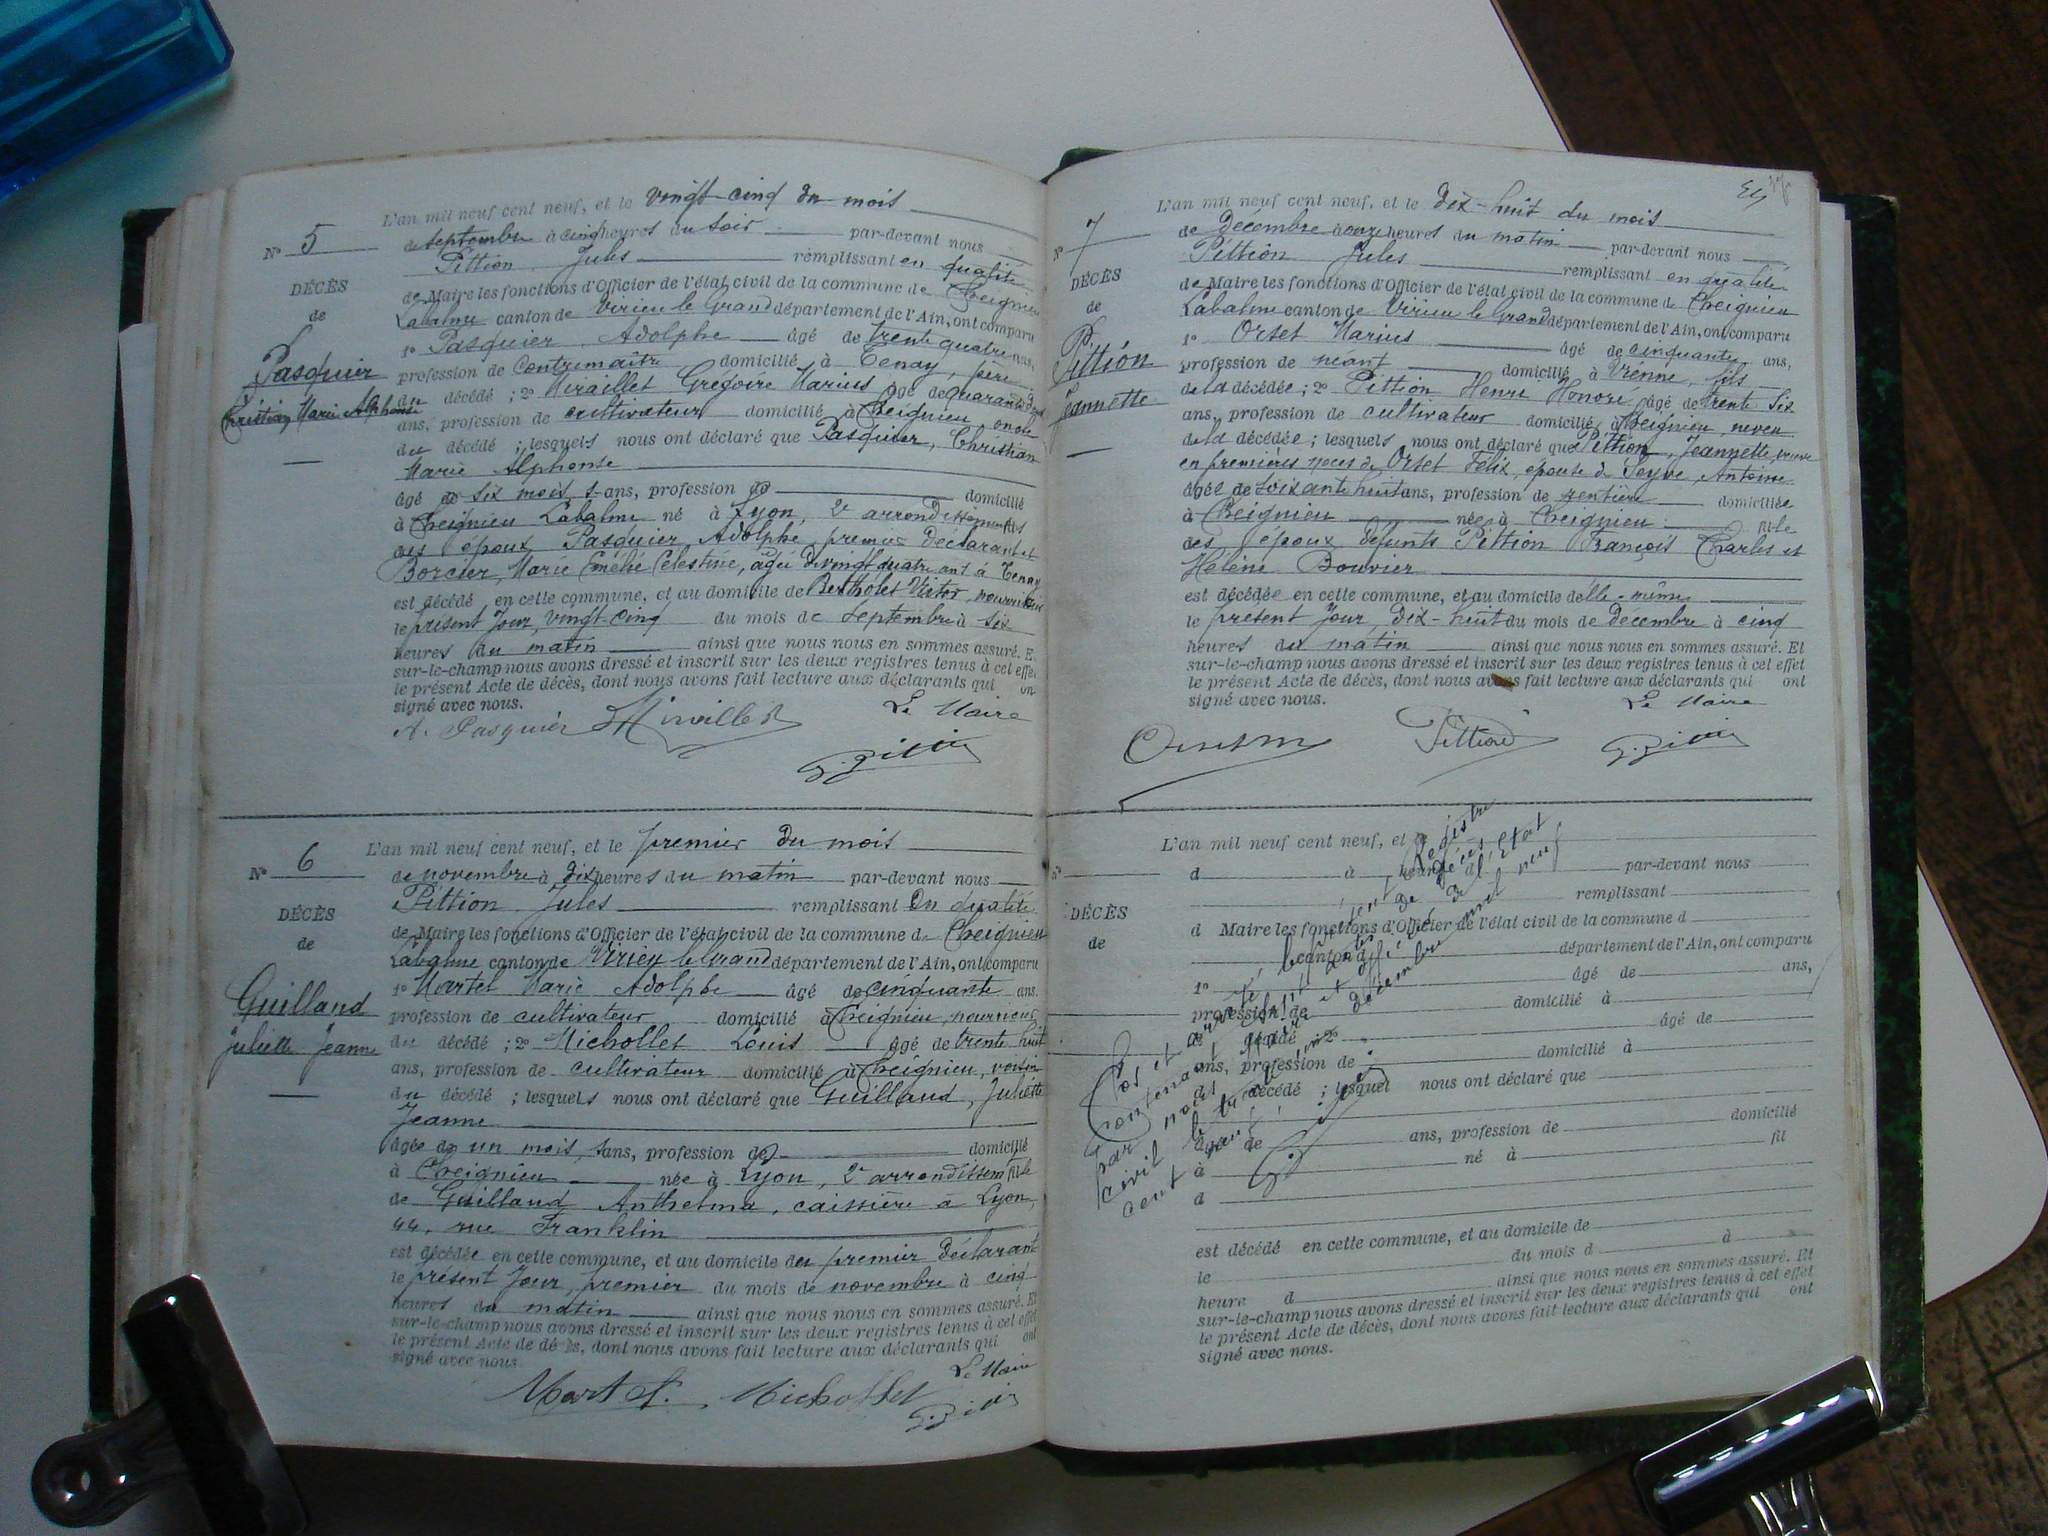 L'an mil neuf cent neuf, et le vingt-cinq du mois
N° 5
de septembre à cinq heures du soir par-devant nous
Pittion Jules remplissant en qualité
DÉCÈS
de Maire les fonctions d'Officier de l'état civil de la commune de Cheignieu
de
Labalme canton de Virieu le Grand département de l'Ain, ont comparu
1° Pasquier Adolphe âgé de trente quatre ans,
Pasquier
profession de contremaître domicilié à Tenay, père
Christian Marie Alphonse
du décédé ; 2° Miraillet Grégoire Marius âgé de quarante
ans, profession de cultivateur domicilié à Cheignieu oncle
du décédé ; lesquels nous ont déclaré que Pasquier, Christian
Marie Alphonse
âgé de six mois, s ans, profession de domicilié
à Cheignieu Labalme né à Lyon, 2e arrondissement fils
des époux Pasquier, Adolphe premier déclarant et
Borcier, Marie Amélie Célestine, âgée de vingt quatre ans à Tenay
est décédé en cette commune, et au domicile de Bertholet Victor, nourricier
le présent jour, vingt-cinq du mois de septembre à six
heures du matin ainsi que nous nous en sommes assuré. Et
sur-le-champ nous avons dressé et inscrit sur les deux registres tenus à cet effet
le présent Acte de décès, dont nous avons fait lecture aux déclarants qui ont
signé avec nous.
Le Maire
A. Pasquier
L'an mil neuf cent neuf, et le premier du mois
N° 6
de novembre à dix heures du matin par-devant nous
Pittion Jules remplissant en qualité
DÉCÈS
de Maire les fonctions d'Officier de l'état civil de la commune de Cheignieu
de
Labalme canton de Virieu le Grand département de l'Ain, ont comparu
1° Martel Marie Adolphe âgé de cinquante ans,
Guilland
profession de cultivateur domicilié à Cheignieu, nourricier
Juliette Jeanne
du décédé ; 2° Michollet Louis âgé de trente huit
ans, profession de cultivateur domicilié à Cheignieu, voisin
du décédé ; lesquels nous ont déclaré que Guilland, Juliette
Jeanne
âgée de un mois, sans, profession de domicilié
à Cheignieu née à Lyon, 2e arrondissem fille
de Guilland Anthelma, caissière à Lyon,
44, rue Franklin
est décédée en cette commune, et au domicile du premier déclarant
le présent jour, premier du mois de novembre à cinq
heures du matin ainsi que nous nous en sommes assuré. Et
sur-le-champ nous avons dressé et inscrit sur les deux registres tenus à cet effet
le présent Acte de décès, dont nous avons fait lecture aux déclarants qui ont
signé avec nous.
Le Maire
Martel. Michollet
L'an mil neuf cent neuf, et le dix-huit du mois
N° 7
de décembre à onze heures du matin par-devant nous
Pittion Jules remplissant en qualité
DÉCÈS
de Maire les fonctions d'Officier de l'état civil de la commune de Cheignieu
de
Labalme canton de Virieu le Grand département de l'Ain, ont comparu
1° Orset Marius âgé de cinquante ans,
Pittion
profession de néant domicilié à Vienne, fils
Jeannette
de la décédée ; 2° Pittion Henri Honoré, âgé de trente six
ans, profession de cultivateur domicilié à Cheignieu, neveu
de la décédée ; lesquels nous ont déclaré que Pittion, Jeannette, veuve
en premières noces de Orset Félix, épouse de Seyve Antoine
âgée de soixante huit ans, profession de rentière domiciliée
à Cheignieu née à Cheignieu fille
des époux défunts Pittion François Charles et
Hélène Bouvier
est décédée en cette commune, et au domicile d'elle-même
le présent jour, dix-huit du mois de décembre à cinq
heures du matin ainsi que nous nous en sommes assuré. Et
sur-le-champ nous avons dressé et inscrit sur les deux registres tenus à cet effet
le présent Acte de décès, dont nous avons fait lecture aux déclarants qui ont
signé avec nous.
Le Maire
Pittion
L'an mil neuf cent neuf, et le
N°
d à heure d par-devant nous
remplissant
DÉCÈS
d Maire les fonctions d'Officier de l'état civil de la commune d
de
canton d département de l'Ain, ont comparu
1° âgé de ans,
profession de domicilié à
d décédé ; 2° âgé de
ans, profession de domicilié à
d décédé ; lesquel nous ont déclaré que
âgé de ans, profession de domicilié
à né à fil
d
est décédé en cette commune, et au domicile de
le du mois d à
heure d ainsi que nous nous en sommes assuré. Et
sur-le-champ nous avons dressé et inscrit sur les deux registres tenus à cet effet
le présent Acte de décès, dont nous avons fait lecture aux déclarants qui ont
signé avec nous.
Clos et arrêté, le présent registre
contenant sept actes de décès et
par nous Maire et officier de l'état
civil le décembre mil neuf
cent neuf